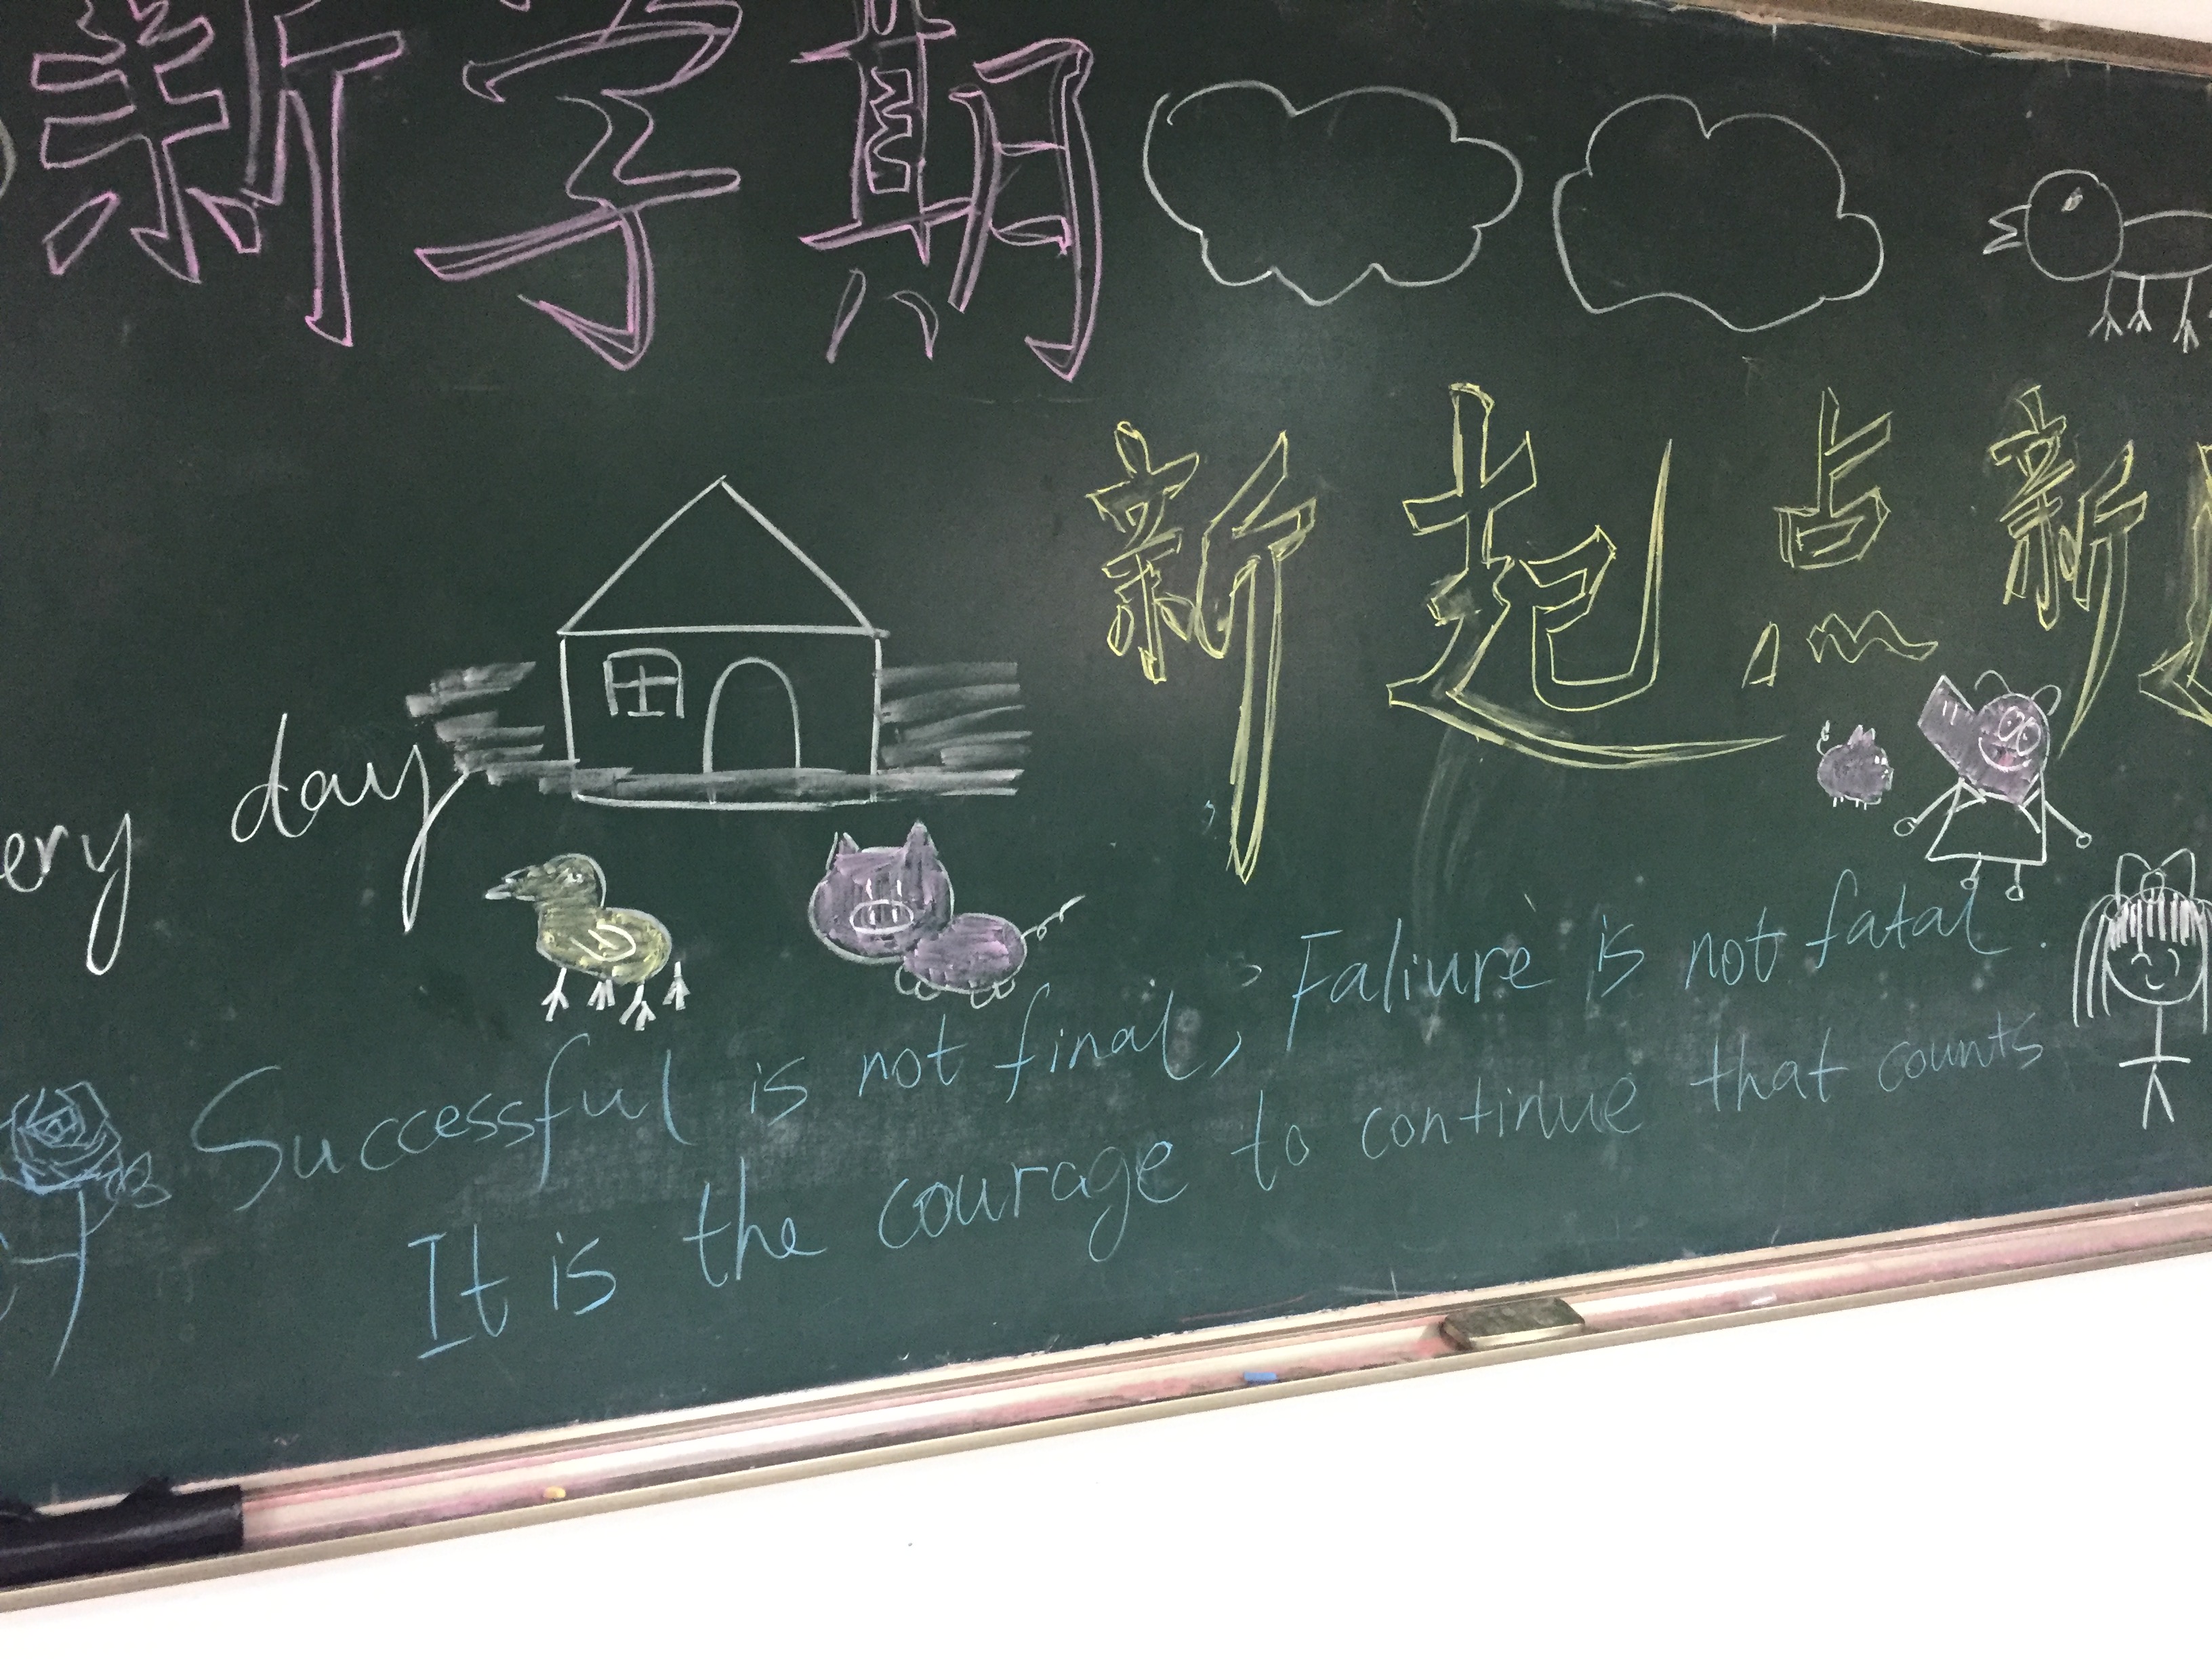 新学期
新起点新
ery day
Successful is not final, Faliure is not fatal.
It is the courage to continue that counts